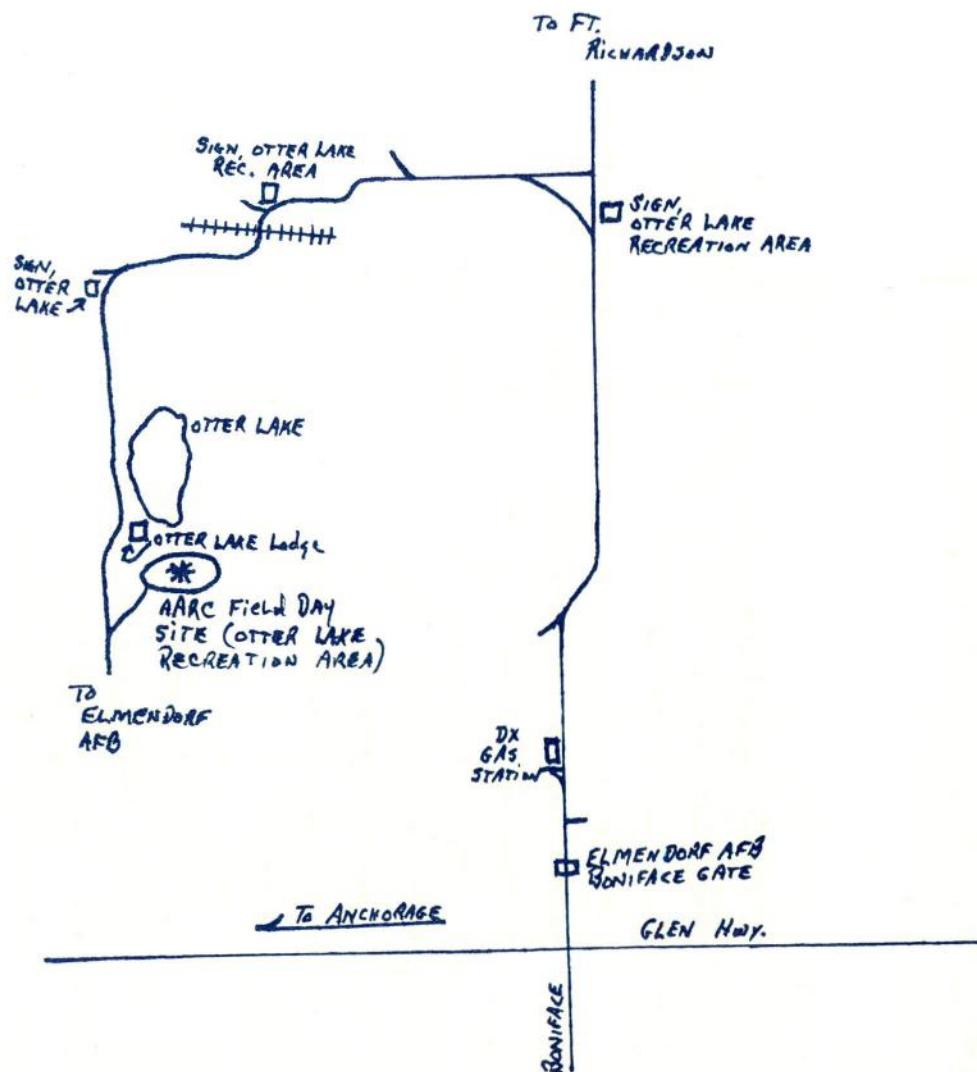 To FT.
RICHARDSON
SIGN, OTTER LAKE
REC. AREA
SIGN,
OTTER LAKE
RECREATION AREA
SIGN,
OTTER
LAKE
OTTER LAKE
OTTER LAKE Lodge
AARC Field DAY
SITE (OTTER LAKE
RECREATION AREA)
To
ELMENDORF
AFB
DX
GAS
STATION
ELMENDORF AFB
BONIFACE GATE
To ANCHORAGE
GLEN HWY.
BONIFACE